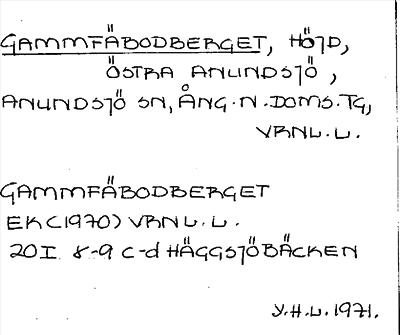 GAMMFÄBODBERGET, HÖJD,
ÖSTRA ANUNDSJÖ,
ANUNDSJÖ SN, ÅNG. N. DOMS. TG,
VRNL. L.
GAMMFÄBODBERGET
EK (1970) VRNL. L.
20I 8-9 c-d HÄGGSJÖBÄCKEN
Y.H.L. 1971.